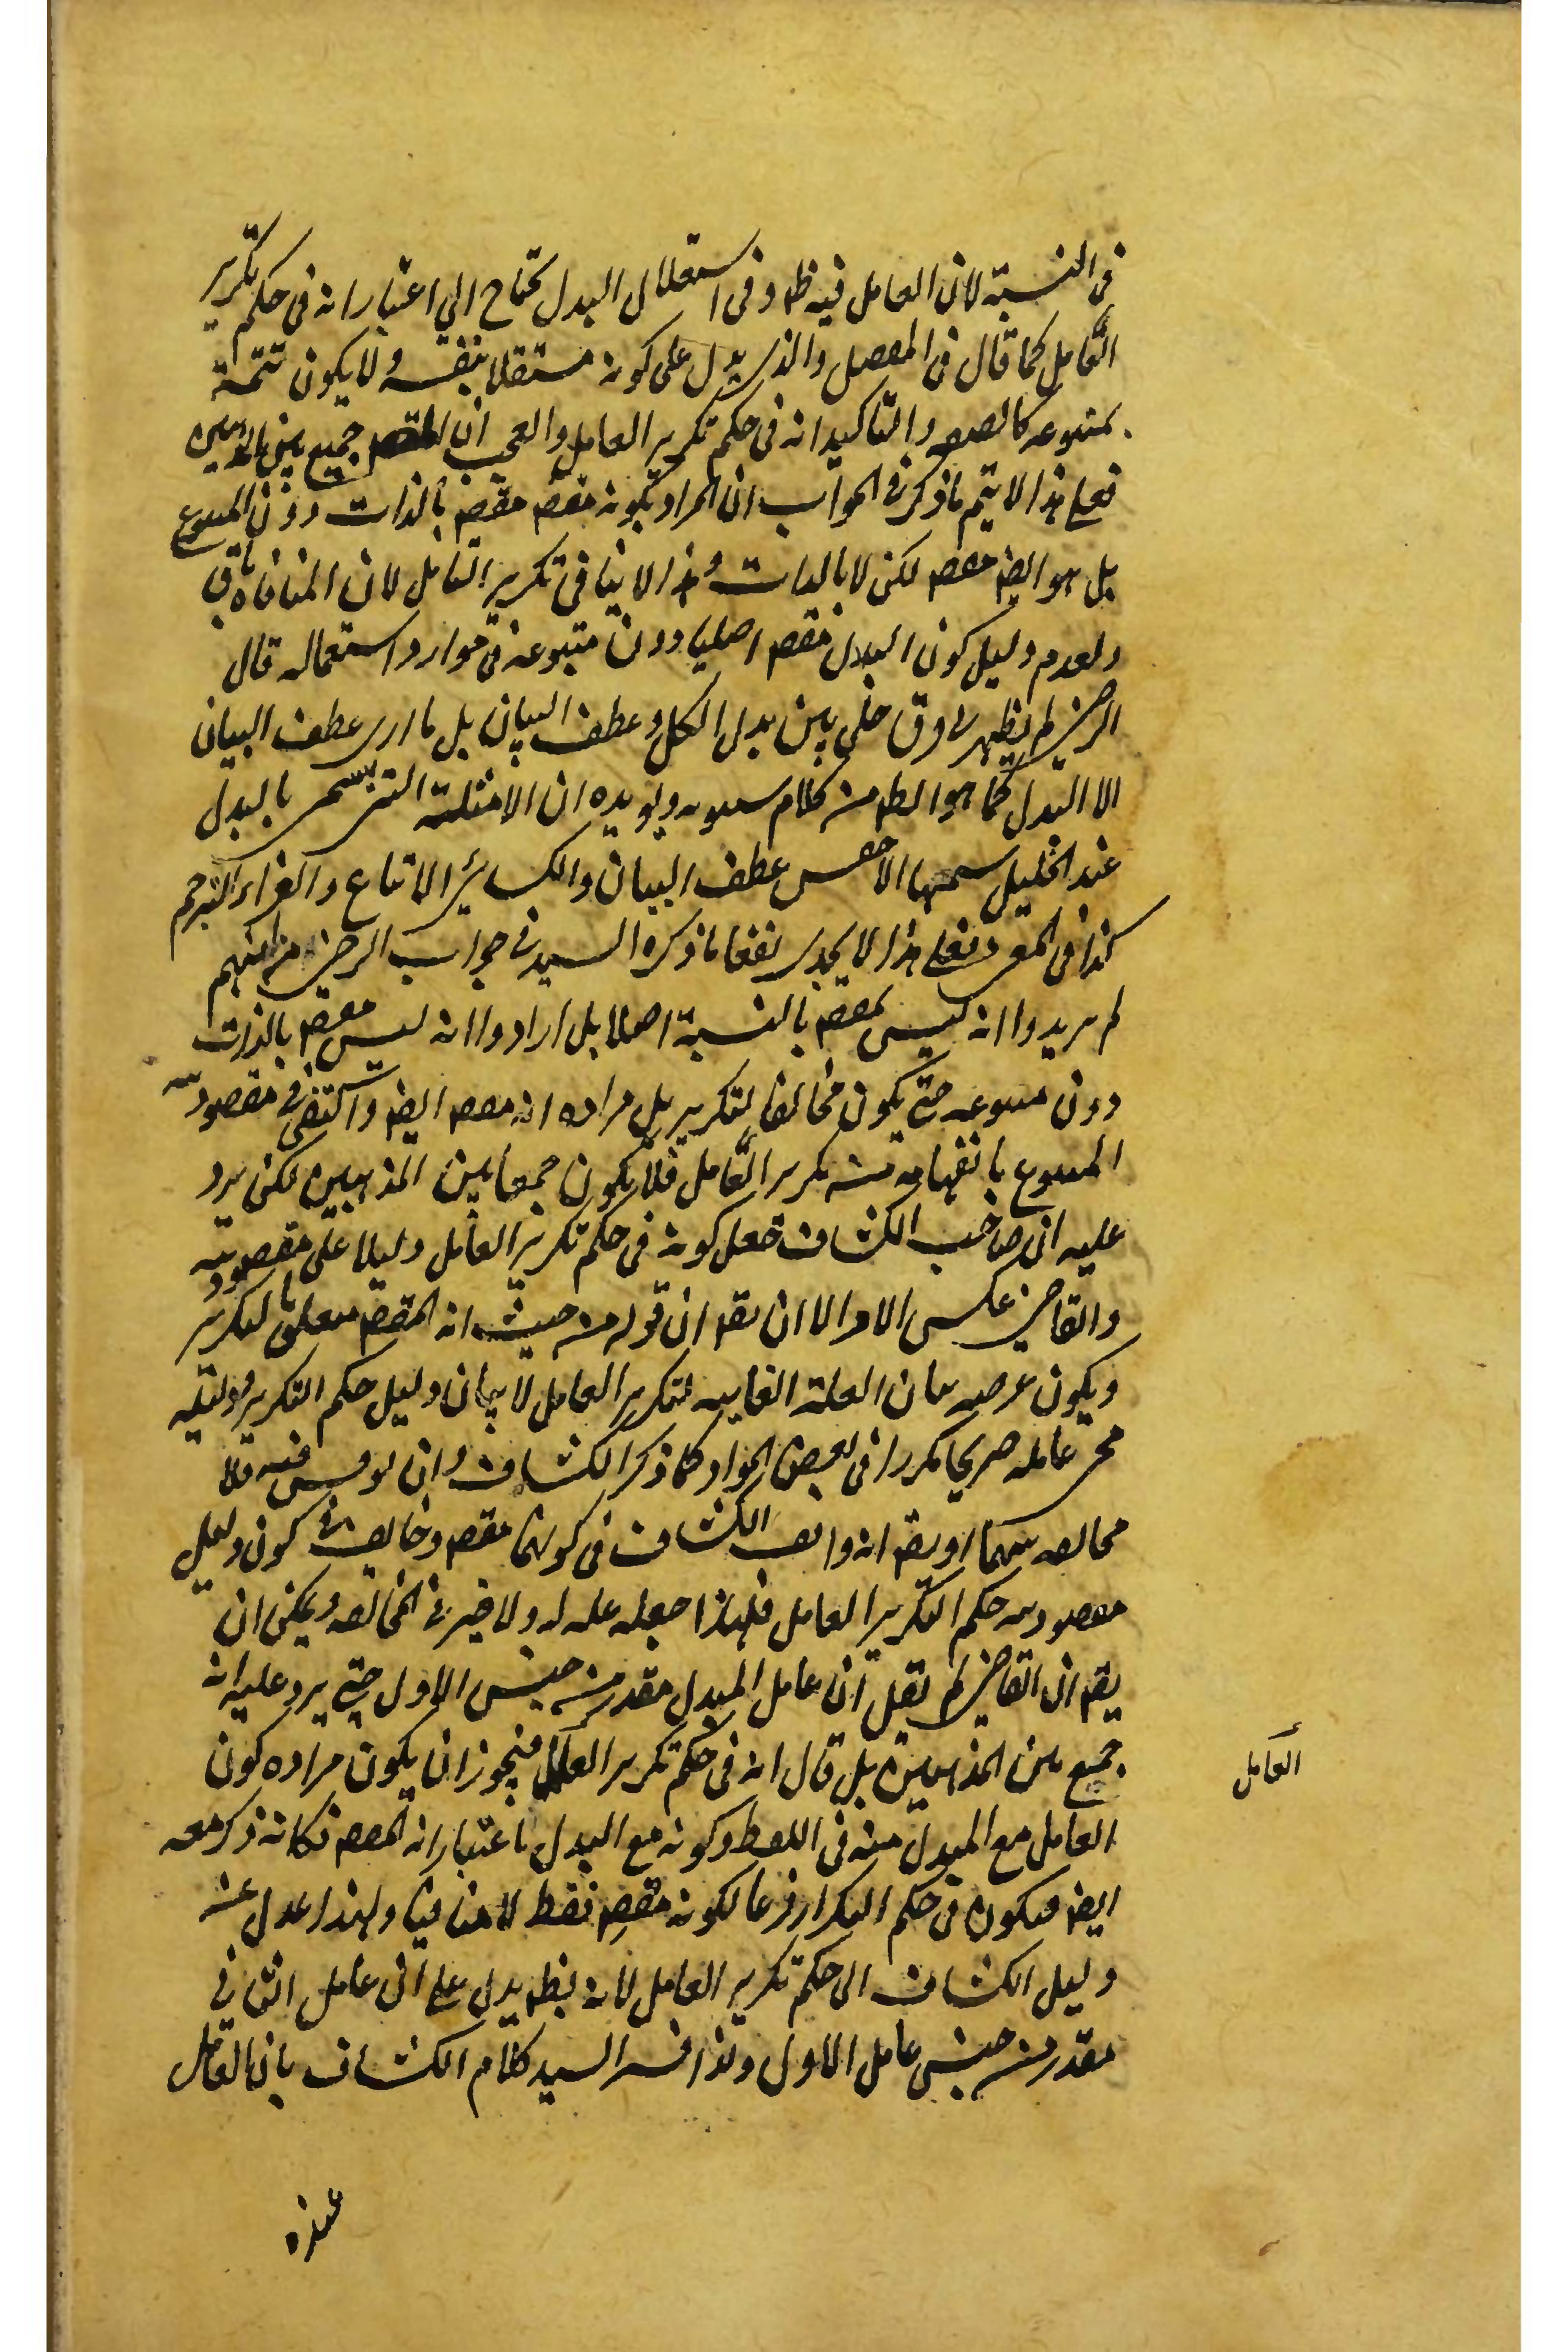 في النسبة لان العامل فيه ظ وفي استقلال البدل يحتاج الي اعتبار انه في حكم تكرير
العامل كما قال في المفصل والذي يدل على كونه مستقلا بنفسه ولا يكون تتمة
لمتبوعه كالصفه والتاكيد انه في حكم تكرير العامل والعجب ان جميع بين
فعلى هذا لا يتم ما ذكر في الجواب ان المراد بكونه مقصـ مقصـ بالذات دون المتبوع
بل هو ايضـ مقصـ لكن لا بالذات وهذا لا ينافي تكرير العامل لان المنافاة باق
ولعدم دليل كون البدل مقصـ اصليا دون متبوعه في موارد استعماله قال
الرضي لم يظهر لي فرق جلي بين بدل الكل وعطف البيان بل ما ارى عطف البيان
الا البدل كما هو الظ من كلام سيبويه ويويده ان الامثلة التي يسمى بالبدل
عند الخليل سمها الاخفس عطف البيان والكسائي الاتباع والفراء الترجم
كذا في وعلى هذا لا يجدي نفعا ما ذكره السيد في جواب الرضي من انهم
لم يريدوا انه ليس بمقصـ بالنسبة اصلا بل ارادوا انه ليس مقصـ بالذات
دون متبوعه حتى يكون مخالفا لتكرير بل مراده انه مقصـ ايضـ واكتفى في مقصودية
المتبوع بانفهامه من تكرير العامل فلا يكون جمعا بين المذهبين لكن يرد
عليه ان صاحب الكشاف جعل كونه في حكم تكرير العامل دليلا على مقصوديته
والقاضي عكس الامر الا ان يقـ ان قوله من حيث انه المقصـ متعلق بالتكرير
ويكون غرضه بيان العلة الغاييه لتكرير العامل لا بيان دليل حكم التكرير ودليله
مجي عامله صريحا مكررا في بعض المواد كما ذكر الكشاف وان لوقس فيه فلا
مخالفه بينهما او يقـ انه وافق الكشاف في كونهما مقصـ وخالف في كون دليل
مقصوديته حكم التكرير العامل فلهذا جعله عله له ولا ضير في المخالفه ويمكن ان
يقـ ان القاضي لم يقل ان عامل المبدل مقدر من جنس الاول حتى يرد عليه انه
جميع بين المذهبين بل قال انه في حكم تكرير العامل فيجوز ان يكون مراده كون
العامل
العامل مع المبدل منه في اللفظ وكونه مع البدل باعتبار انه المقصـ فكانه ذكر معه
ايضـ فيكون في حكم التكرار فرعا لكونه مقصـ فقط لا منافيا ولهذا عدل عنه
دليل الكشاف الى حكم تكرير العامل لانه بظـ يدل على ان عامل الثاني
مقدر من جنس عامل الاول ولذا فسر السيد كلام الكشاف بان العامل
عنده